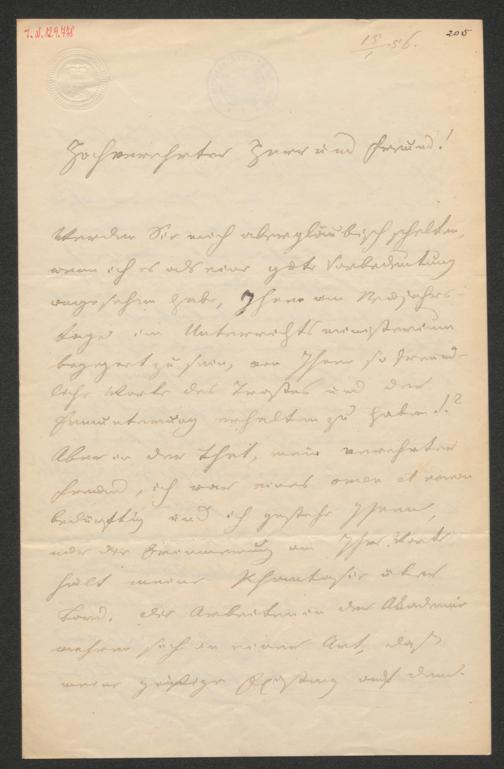 I. N. 129.478
15/1 56.
205
Hochverehrter Herr und Freund!
Werden Sie mich abergläubisch schelten,
wenn ich es als eine gute Vorbedeutung
angesehen habe, Ihnen am Neujahrs-
tage im Unterrichtsministerium
begegnet zu sein, von Ihnen so freund-
liche Worte des Trostes und der
Ermunterung erhalten zu haben!?
Aber in der That, mein verehrter
Freund, ich war eines omen et
bedürftig und ich gestehe Ihnen,
nur die Erinnerung an Ihre Worte
hält meine Phantasie über
Bord. Die Arbeiten in der Akademie
mehren sich in einer Art, daß
meine geistige Existenz auf dem